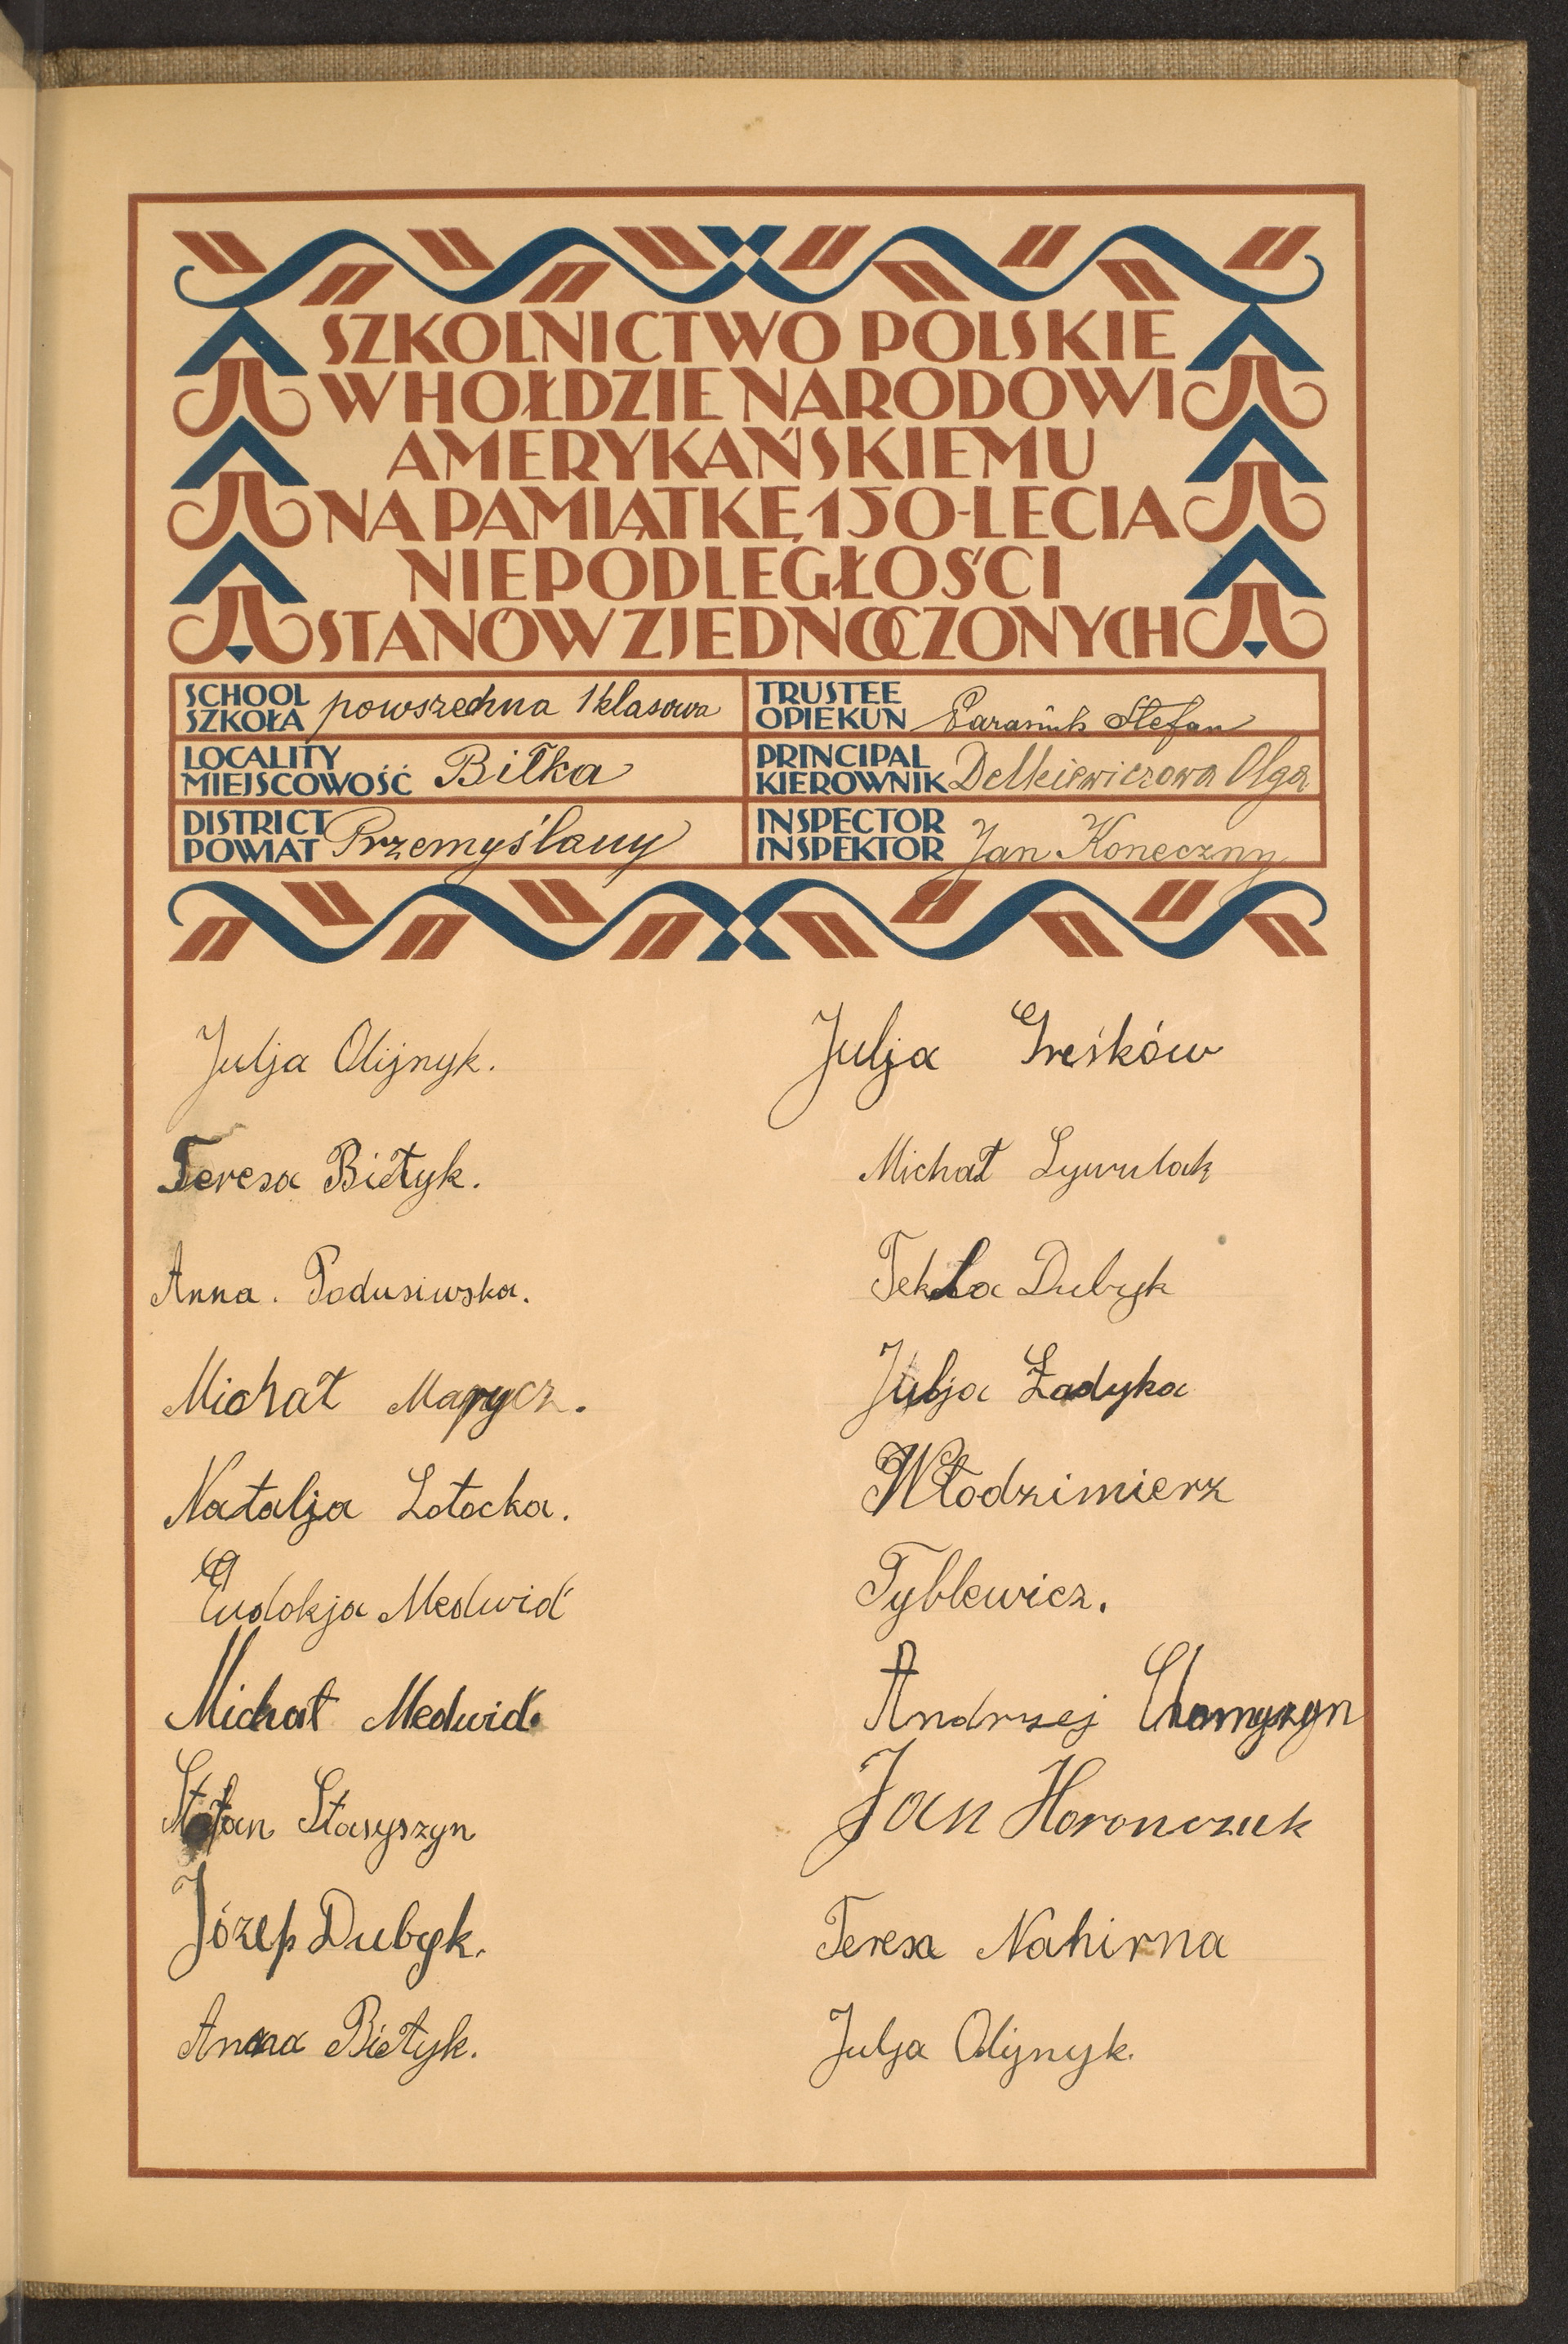 SZKOLNICTWO POLSKIE
W HOŁDZIE NARODOWI
AMERYKAŃSKIEMU
NA PAMIĄTKĘ 150-LECIA
NIEPODLEGŁOŚCI
STANÓW ZJEDNOCZONYCH
SCHOOL
SZKOŁA powszechna 1 klasowa
LOCALITY
MIEJSCOWOŚĆ Biłka
DISTRICT
POWIAT Przemyślany
TRUSTEE
OPIEKUN Parasiuk Stefan
PRINCIPAL
KIEROWNIK Delkiewiczowa Olga
INSPECTOR
INSPEKTOR Jan Koneczny
Julja Olijnyk.
Teresa Biełyk.
Anna. Podusiwska.
Michał
Natalja Łotocka.
Eudokja Medwid́
Michał Medwid́.
Stefan Stasyszyn
Józef Dubyk.
Anna Biełyk.
Julja Greśków
Michał
Tekla Dubyk
Julja Ładyka
Włodzimierz
Tyblewicz.
Andrzej Chomyszyn
Jan Horonczuk
Teresa Nahirna
Julja Olijnyk.